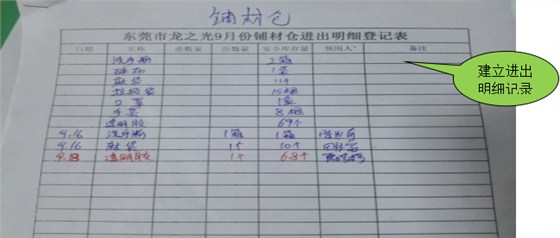 铺材仓
东莞市龙之光9月份铺材仓进出明细登记表
日期 名称 进数量 出数量 安全库存量 领用人 备注
洗手粉 2箱
1袋
胶袋 11个
垃圾袋 15捆
口罩 1盒
手套 8捆
透明胶 69个
9.16 洗手粉 1箱 1箱
9.16 胶袋 1个 10个
9.18 透明胶 1个 68个
建立进出
明细记录